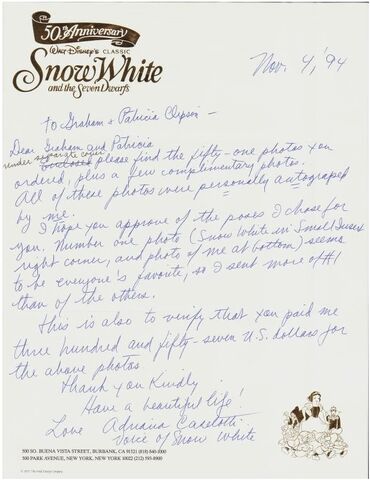 50th Anniversary
WALT DISNEY'S CLASSIC
Snow White
and the Seven Dwarfs
Nov. 4, '94
To Graham & Patricia Clipson -
Dear Graham and Patricia
under separate cover
Enclosed please find the fifty-one photos you
ordered, plus a few complimentary photos.
All of these photos were personally autograped
by me.
I hope you approve of the poses I chose for
you. Number one photo (Snow White in Small Insert
right corner, and photo of me at bottom) seems
to be everyone's favorite, so I sent more of #1
than of the others.
This is also to verify that you paid me
three hundred and fifty-seven U.S. dollars for
the above photos.
Thank you Kindly
Have a beautiful life!
Love Adriana Caselotti
Voice of Snow White
500 SO. BUENA VISTA STREET, BURBANK, CA 91521 (818) 840-1000
500 PARK AVENUE, NEW YORK, NEW YORK 10022 (212) 593-8900
The Walt Disney Company